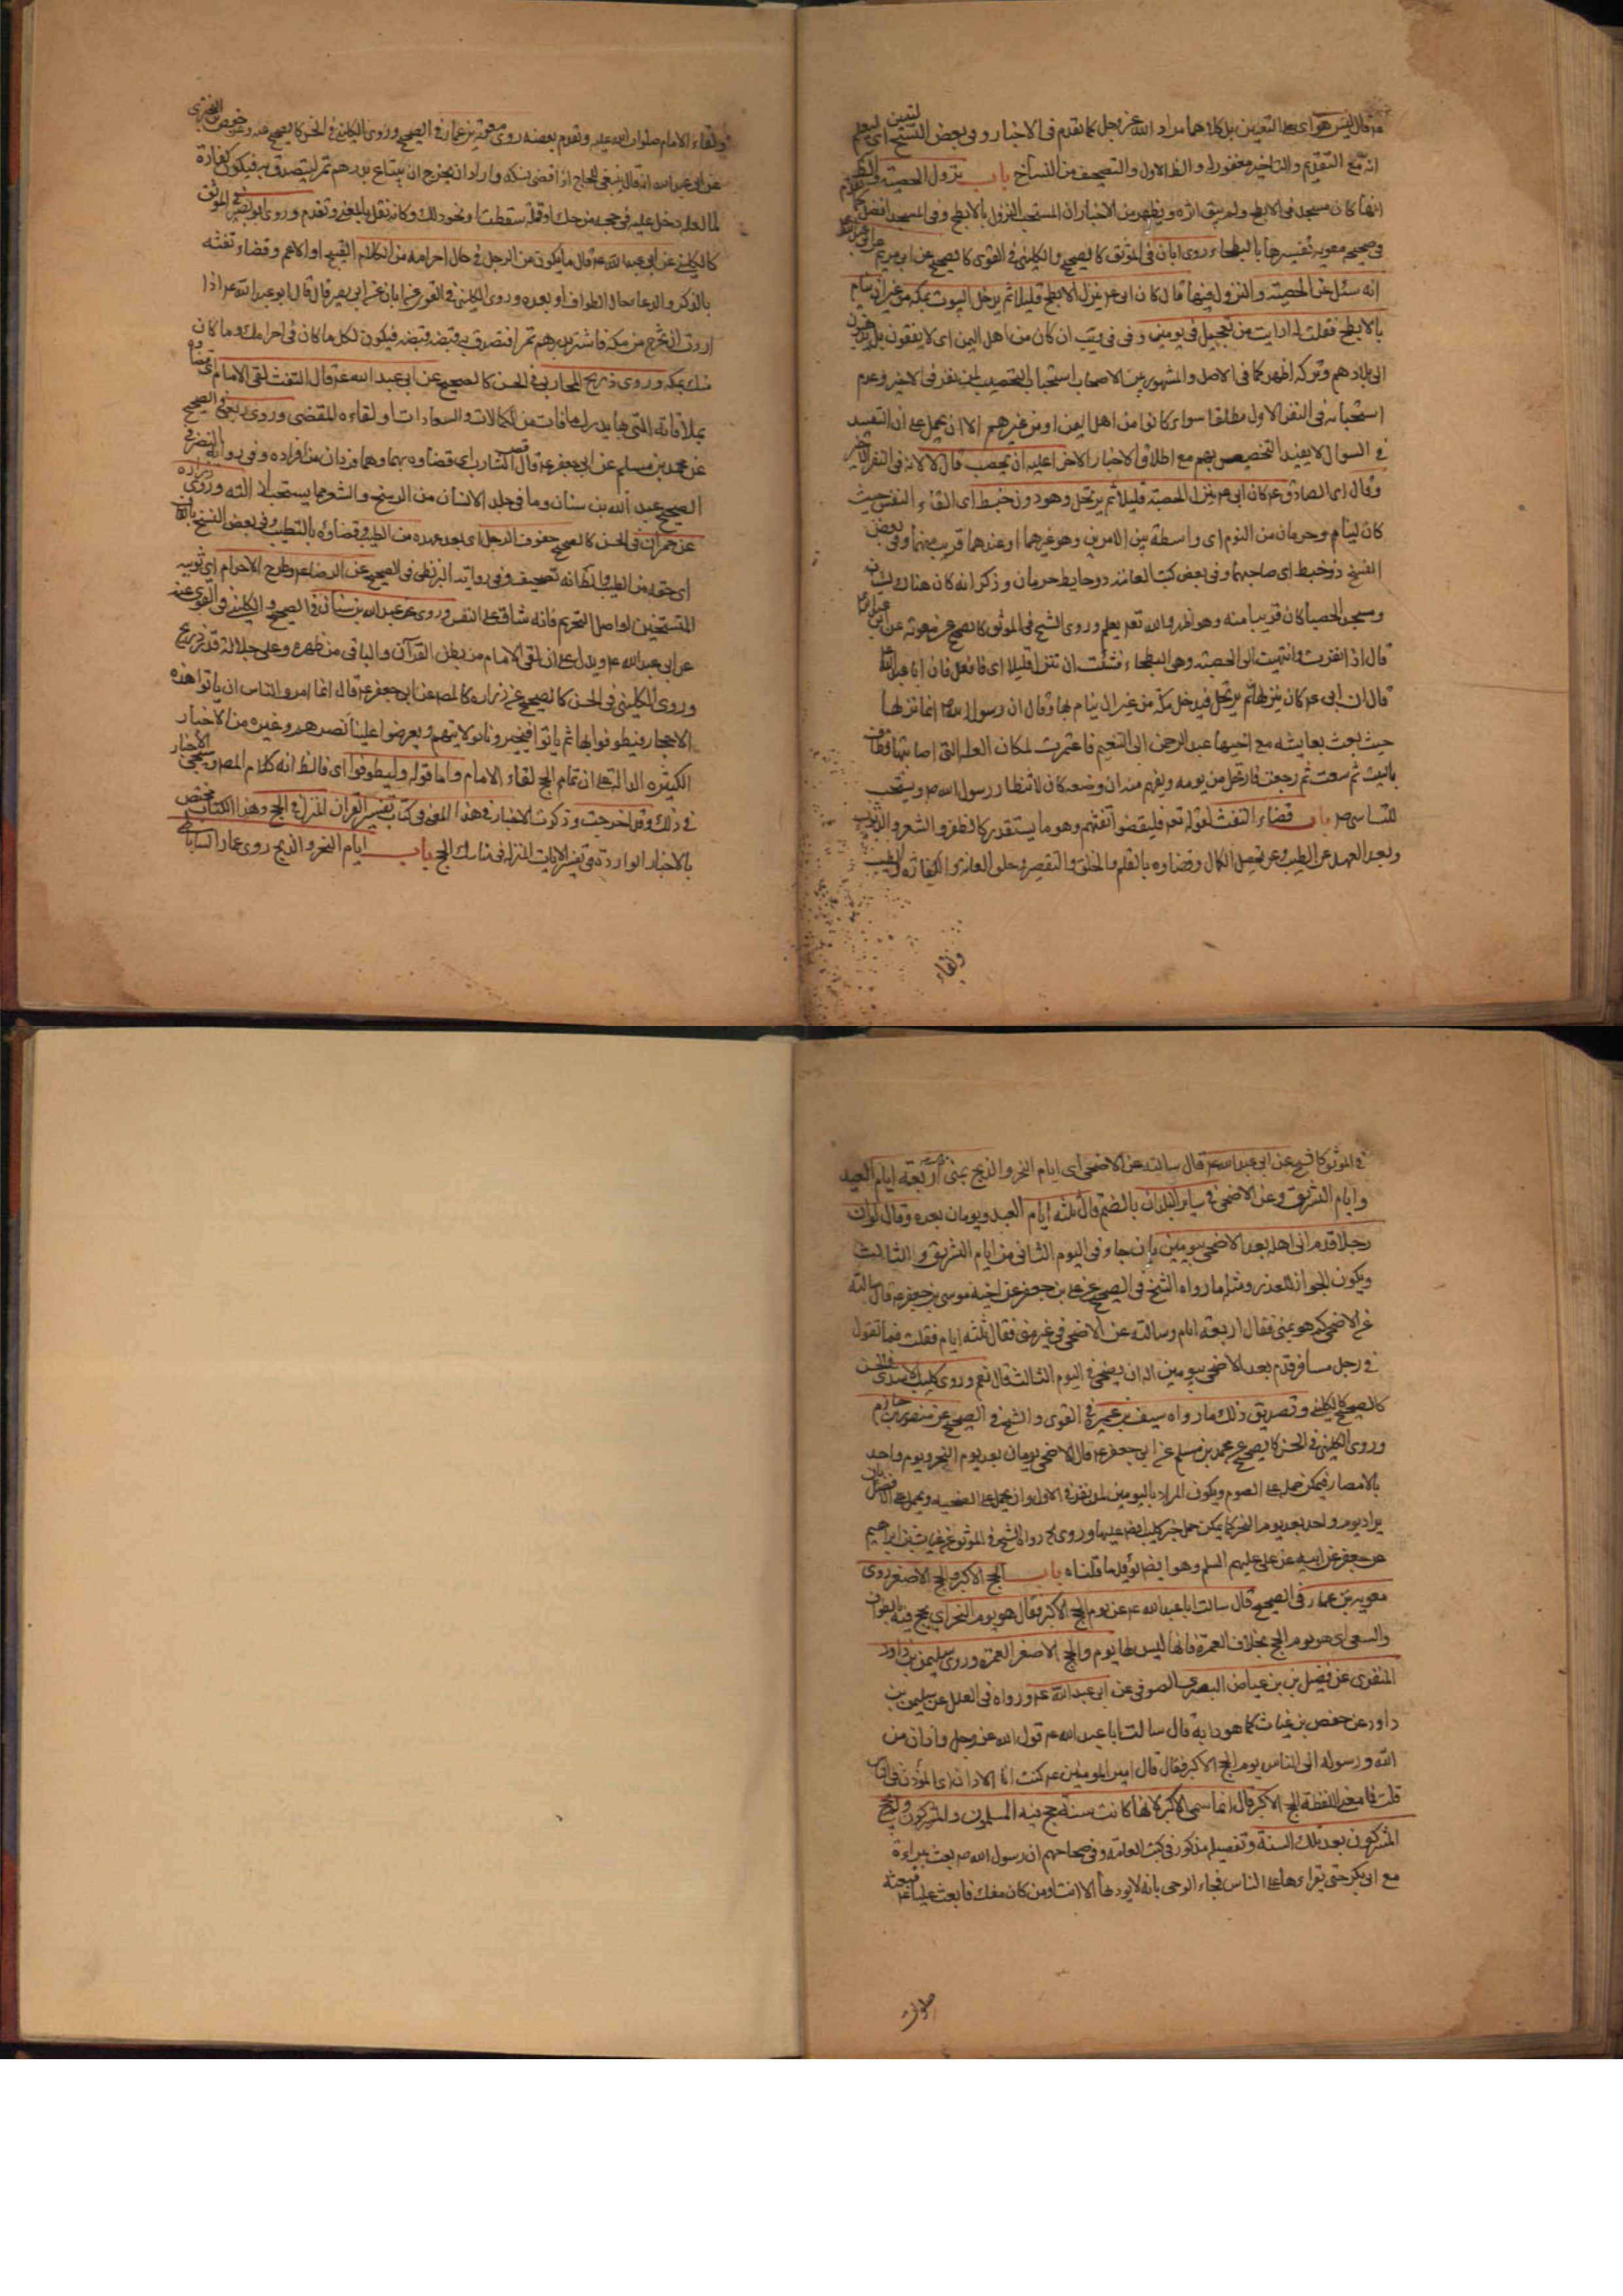 انه مع التقديم والتاخير مغفور له والظ الاول والتصحيف من النساخ باب نزول الحصبة
انها كان مسجد فى الابطح ولم يبق اثره ويظهر من الاخبار ان المستحب النزول بالابطح وفى المسجد افضل
وفى صحيحة معوية تفسيرها بالبطحاء روى ابان فى الموثق كالصحيح والكلينى فى القوى كالصحيح عن ابى مريم
انه سئل عن الحصبة والنزول فيها قال كان ابى ع ينزل الابطح قليلا ثم يدخل البيوت بمكة من غير ان ينام
بالابطح فقلت له ارايت من تعجل فى يومين
الى بلادهم وتركه اظهر كما فى الاصل والمشهور بين الاصحاب استحباب التحصيب لمن نفر فى الاخير وعدم
استحبابه فى النفر الاول مطلقا سواء كانوا من اهل اليمن او من غيرهم الا ان يحمل على ان التقييد
فى السوال لا يفيد التخصيص بهم مع اطلاق الاخبار الاخر اعليه ان يحصب قال لا لانه فى النفر الاخير
وقال اى الصادق ع كان ابى ع ينزل الحصبة قليلا ثم يرتحل وهو دون خبط
كان لينام وحرمان من النوم اى واسطة بين الامرين وهو غيرهما او عندهما قريب منهما وفى بعض
النسخ ذو خبط اى صاحبهما وفى بعض كتب العامة دو حايط حرمان وذكر انه كان هناك بستان
ومسجد الحصبا كان قريبا منه وهو اظهر والله تعه يعلم وروى الشيخ فى الموثق كالصحيح عن معوية عن ابى
قال اذا نفرت وانتهيت الى الحصبة وهى البطحاء فشئت ان تنزل قليلا اى فافعل فان ابا عبد الله
قال ان ابى ع كان ينزلها ثم يرتحل فيدخل مكة من غير ان ينام بها وقال ان رسول الله ص انما نزلها
حيث بعث بعايشة مع اخيها عبد الرحمن الى التنعيم فاعتمرت لمكان العلة التى اصابتها فطافت
بالبيت ثم سعت ثم رجعت فارتحل من يومه ويفهم منه ان وضعه كان لانتظار رسول الله ص ويستحب
للتاسى به باب قضاء التفث لقوله تعه فليقضوا تفثهم وهو ما يستقذر كالظفر والشعر والشارب
وبعد العهد عن الطيب وعن فعل الكمال وقضاوه بالقلم والحلق والتقصير وحلق العانة والكفارة والطيب
ولقاء
ولقاء الامام صلوات الله عليه وتقدم بعضه روى معوية بن عمار فى الصحيح وروى الكلينى فى الحسن كالصحيح عنه وعن حفص بن البخترى
عن ابى عبد الله انه قال ينبغى للحاج اذا قضى نسكه واراد ان يخرج ان يبتاع بدرهم تمرا يتصدق به فيكون كفارة
لما لعله دخل عليه فى حجه من حك او قملة سقطت او نحو ذلك وكانه نقل بالمعنى وتقدم وروى ابو بصير فى الموثق
كالكلينى عن ابى عبد الله ع قال ما يكون من الرجل فى حال احرامه من الكلام القبيح او الاعم وقضاء تفثه
بالذكر والدعا حال الطواف او بعده وروى الكلينى فى القوى عن ابان عن ابى بصير قال قال ابو عبد الله ع اذا
اردت ان تخرج من مكة فاشتر بدرهم تمرا فتصدق به قبضة قبضة فيكون لكل ما كان فى احرامك وما كان
منك بمكة وروى ذريح المحاربى فى الحسن كالصحيح عن ابى عبد الله ع قال التفث لقى الامام
بملاقاته التى بها يدرك ما فات من الكمالات والسعادات او لقاءه المقضى وروى ربعى فى الصحيح
عن محمد بن مسلم عن ابى جعفر ع قال قص الشارب اى قضاوه بهما وهما فردان من افراده وفى رواية النضر فى
الصحيح عبد الله بن سنان وما فى جلد الانسان من الوسخ والشعر مما يستحب ازالته وروى زرارة
عن حمران فى الحسن كالصحيح حفوف الرجل اى بعد عهده من الطيب وقضاؤه بالتطيب وفى بعض النسخ بالقاف
اى حقه من الطيب والظ انه تصحيف وفى رواية البزنطى فى الصحيح عن الرضا ع وطرح الاحرام اى ثوبيه
المتسخين او اصل التحريم فانه شاق على النفس وروى عن عبد الله بن سنان فى الصحيح والكلينى فى القوى عنه
عن ابى عبد الله ع ويدل على ان لقى الامام من بطن القرآن والباقى من ظهره وعلى جلالة قدر ذريح
وروى الكلينى فى الحسن كالصحيح عن زرارة كالمص عن ابى جعفر ع قال انما امر الناس ان ياتوا هذه
الاحجار فيطوفوا بها ثم ياتوا فيخبرونا بولايتهم ويعرضوا علينا نصرهم وغيره من الاخبار
الكثيرة الدالة على ان تمام الحج لقاء الامام واما قوله وليطوفوا اى فالظ انه كلام المص وسيجئ الاخبار
فى ذلك وقد اخرجت وذكرت الاخبار فى هذا المعنى فى كتاب تفسير القران المنزل فى الحج وهذا الكتاب مختص
بالاخبار الواردة فى تفسير الايات المنزلة فى مناسك الحج باب ايام النحر والذبح روى عمار الساباطى
فى الموثق كالصحيح عن ابى عبد الله ع قال سالته عن الاضحى اى ايام النحر والذبح بمنى اربعة ايام العيد
وايام التشريق وعن الاضحى فى ساير البلدان بالضم قال ثلثة ايام العيد ويومان بعده وقال لو ان
رجلا قدم الى اهله بعد الاضحى بيومين بان جاء فى اليوم الثانى من ايام التشريق والثالث
ويكون الجواز للعذر ومثله ما رواه الشيخ فى الصحيح عن على بن جعفر عن اخيه موسى بن جعفر ع قال سالته
عن الاضحى كم هو بمنى فقال اربعة ايام وسالته عن الاضحى فى غير منى فقال ثلثة ايام فقلت فما تقول
فى رجل مسافر قدم بعد الاضحى بيومين اله ان يضحى فى اليوم الثالث قال نعم وروى كليب الاسدى فى الحسن
كالصحيح كالكلينى وتصديق ذلك ما رواه سيف بن عميرة فى القوى والشيخ فى الصحيح عن منصور بن حازم
وروى الكلينى فى الحسن كالصحيح عن محمد بن مسلم عن ابى جعفر ع قال الاضحى يومان بعد يوم النحر ويوم واحد
بالامصار فيمكن حمله على الصوم ويكون المراد باليومين لمن نفر فى الاول وان يحمل على التضحية ويحمل على الافضل بان
يراد يوم واحد بعد يوم النحر كما يمكن حمل خبر كليب ايضا عليها وروى الشيخ فى الموثق عن غياث بن ابراهيم
عن جعفر عن ابيه عن على عليهم السلم وهو ايضا يؤيد ما قلناه باب الحج الاكبر والحج الاصغر روى
معوية بن عمار فى الصحيح قال سالت ابا عبد الله ع عن يوم الحج الاكبر فقال هو يوم النحر اى يحج فيه بالطواف
والسعى اى هو يوم الحج بخلاف العمرة فانها ليس لها يوم والحج الاصغر العمرة وروى سليمن بن داود
المنقرى عن فضيل بن بن عياض البصرى الصوفى عن ابى عبد الله ع ورواه فى العلل عن سليمن بن
داود عن حفص بن غياث كما هو دابه قال سالت ابا عبد الله ع قول الله عز وجل واذان من
الله ورسوله الى الناس يوم الحج الاكبر فقال قال امير المومنين ع كنت انا الاذان اى المؤذن
قلت فما معنى اللفظة الحج الاكبر قال انما سمى الاكبر لانها كانت سنة حج فيه المسلمون والمشركون ولم يحج
المشركون بعد تلك السنة وتفصيله مذكور فى كتب العامة وفى صحاحهم ان رسول الله ص بعث ببراءة
مع ابى بكر حتى يقراءها على الناس فجاء الوحى بانه لا يوديها الا انت او من كان منك فابعث عليا ع فبعثه
صلوات